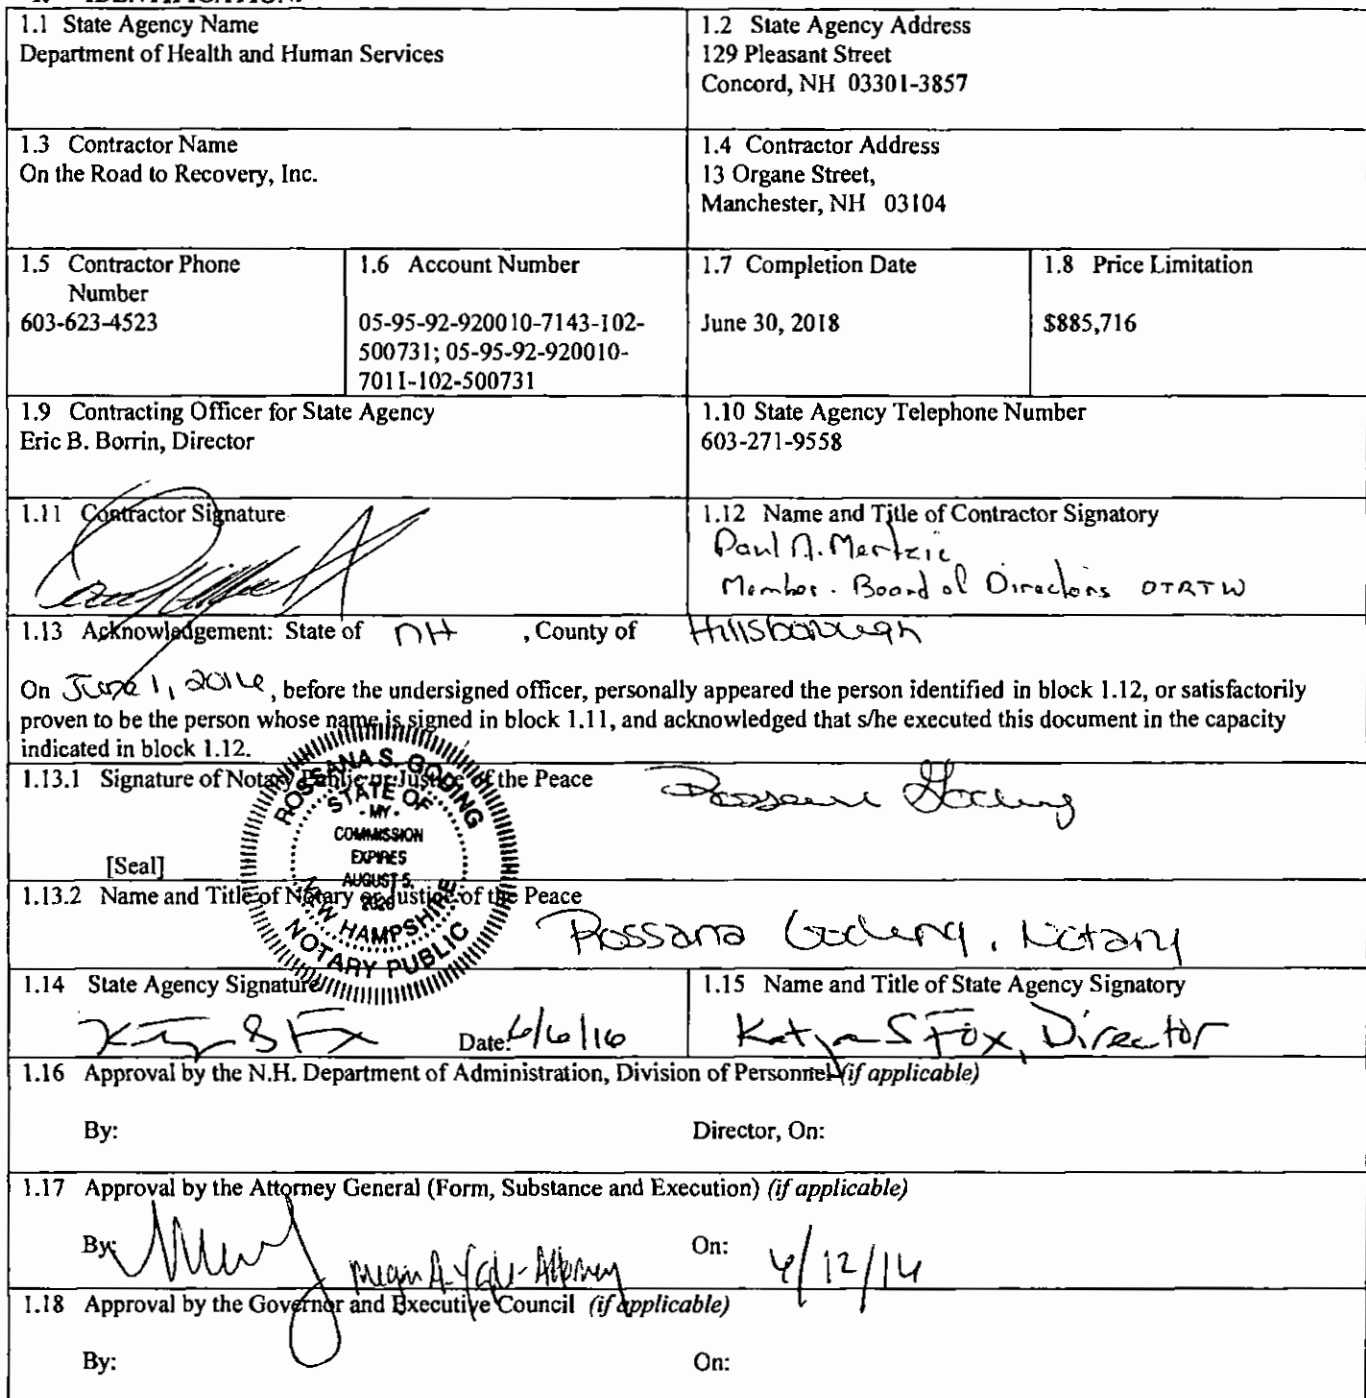 1.1 State Agency Name
Department of Health and Human Services
1.2 State Agency Address
129 Pleasant Street
Concord, NH 03301-3857
1.3 Contractor Name
On the Road to Recovery, Inc.
1.4 Contractor Address
13 Organe Street,
Manchester, NH 03104
1.5 Contractor Phone
Number
603-623-4523
1.6 Account Number
05-95-92-920010-7143-102-
500731; 05-95-92-920010-
7011-102-500731
1.7 Completion Date
June 30, 2018
1.8 Price Limitation
$885,716
1.9 Contracting Officer for State Agency
Eric B. Borrin, Director
1.10 State Agency Telephone Number
603-271-9558
1.11 Contractor Signature
1.12 Name and Title of Contractor Signatory
Paul A. Mertzic
Member. Board of Directors OTRTW
1.13 Acknowledgement: State of NH , County of Hillsborough
On June 1, 2016, before the undersigned officer, personally appeared the person identified in block 1.12, or satisfactorily
proven to be the person whose name is signed in block 1.11, and acknowledged that s/he executed this document in the capacity
indicated in block 1.12.
1.13.1 Signature of Notary Public or Justice of the Peace
[Seal]
ROSSANA S. GODING
STATE OF
- MY -
COMMISSION
EXPIRES
AUGUST 5,
2020
NEW HAMPSHIRE
NOTARY PUBLIC
1.13.2 Name and Title of Notary or Justice of the Peace
Rossana Goding, Notary
1.14 State Agency Signature
Date: 6/6/16
1.15 Name and Title of State Agency Signatory
Katja S Fox, Director
1.16 Approval by the N.H. Department of Administration, Division of Personnel (if applicable)
By: Director, On:
1.17 Approval by the Attorney General (Form, Substance and Execution) (if applicable)
By: Megan A. Yaple - Attorney On: 6/12/16
1.18 Approval by the Governor and Executive Council (if applicable)
By: On: